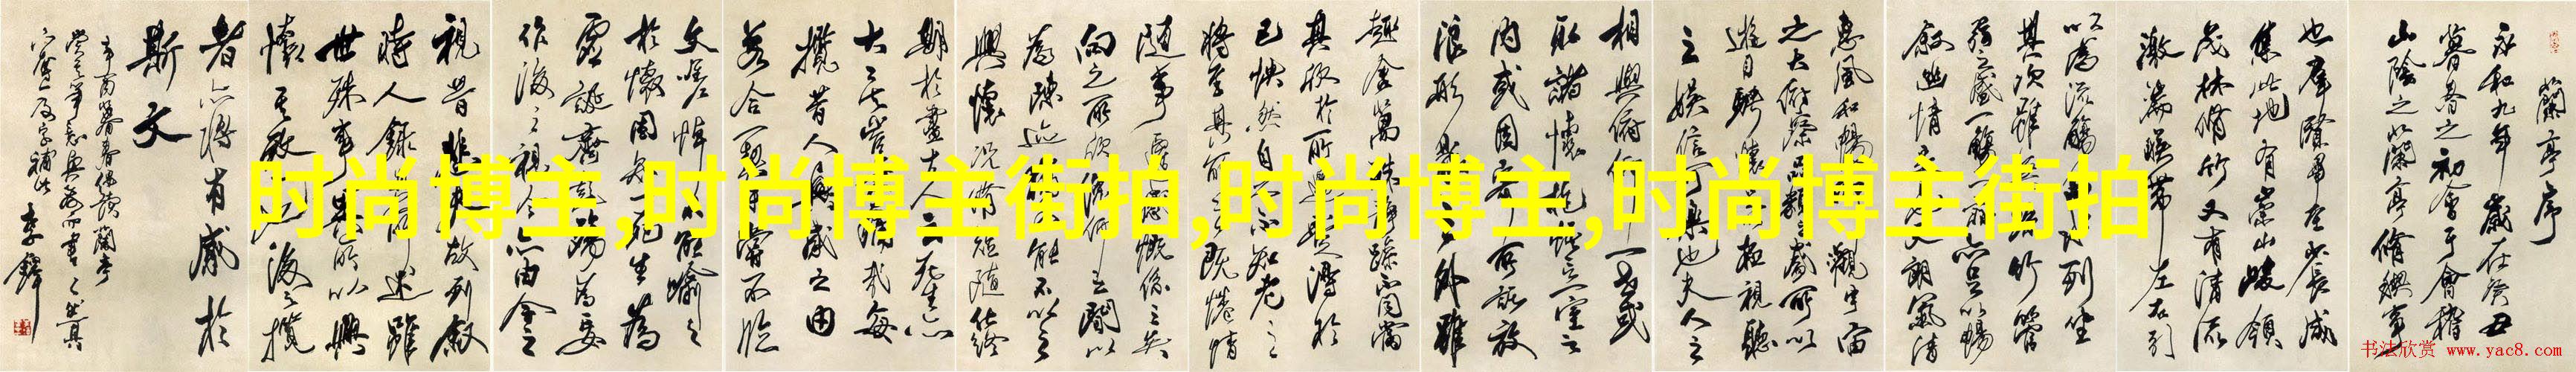 蘭亭序
永和九年歲在癸丑
暮春之初會于會稽
山陰之蘭亭脩禊事
也群賢畢至少長咸
集此地有崇山峻領
茂林脩竹又有清流
激湍暎帶左右引
以為流觴曲水列坐
其次雖無絲竹管
弦之盛一觴一詠亦足以暢
敘幽情是日也天朗氣清
惠風和暢仰觀宇宙
之大俯察品類之盛所以
遊目騁懷足以極視聽
之娛信可樂也夫人之
相與俯仰一世或
取諸懷抱悟言一室之
內或因寄所託放
浪形骸之外雖
趣舍萬殊靜躁不同當
其欣於所遇蹔得於
己快然自足不知老之
將至及其所之既惓情
隨事遷感慨係之矣
向之所欣俛仰之間以
為陳迹猶不能不以之
興懷況脩短隨化終
期於盡古人云死生亦
大矣豈不痛哉每
攬昔人興感之由
若合一契未嘗不臨
文嗟悼不能喻之
於懷固知一死生為
虛誕齊彭殤為妄
作後之視今亦由今之
視昔悲夫故列敘
時人錄其所述雖
世殊事異所以興
懷其致一也後之攬
者亦將有感於
斯文
辛酉暮春偶讀蘭亭
李鐸
时尚博主,时尚博主街拍,时尚博主,时尚博主街拍
书法欣赏 www.yac8.com